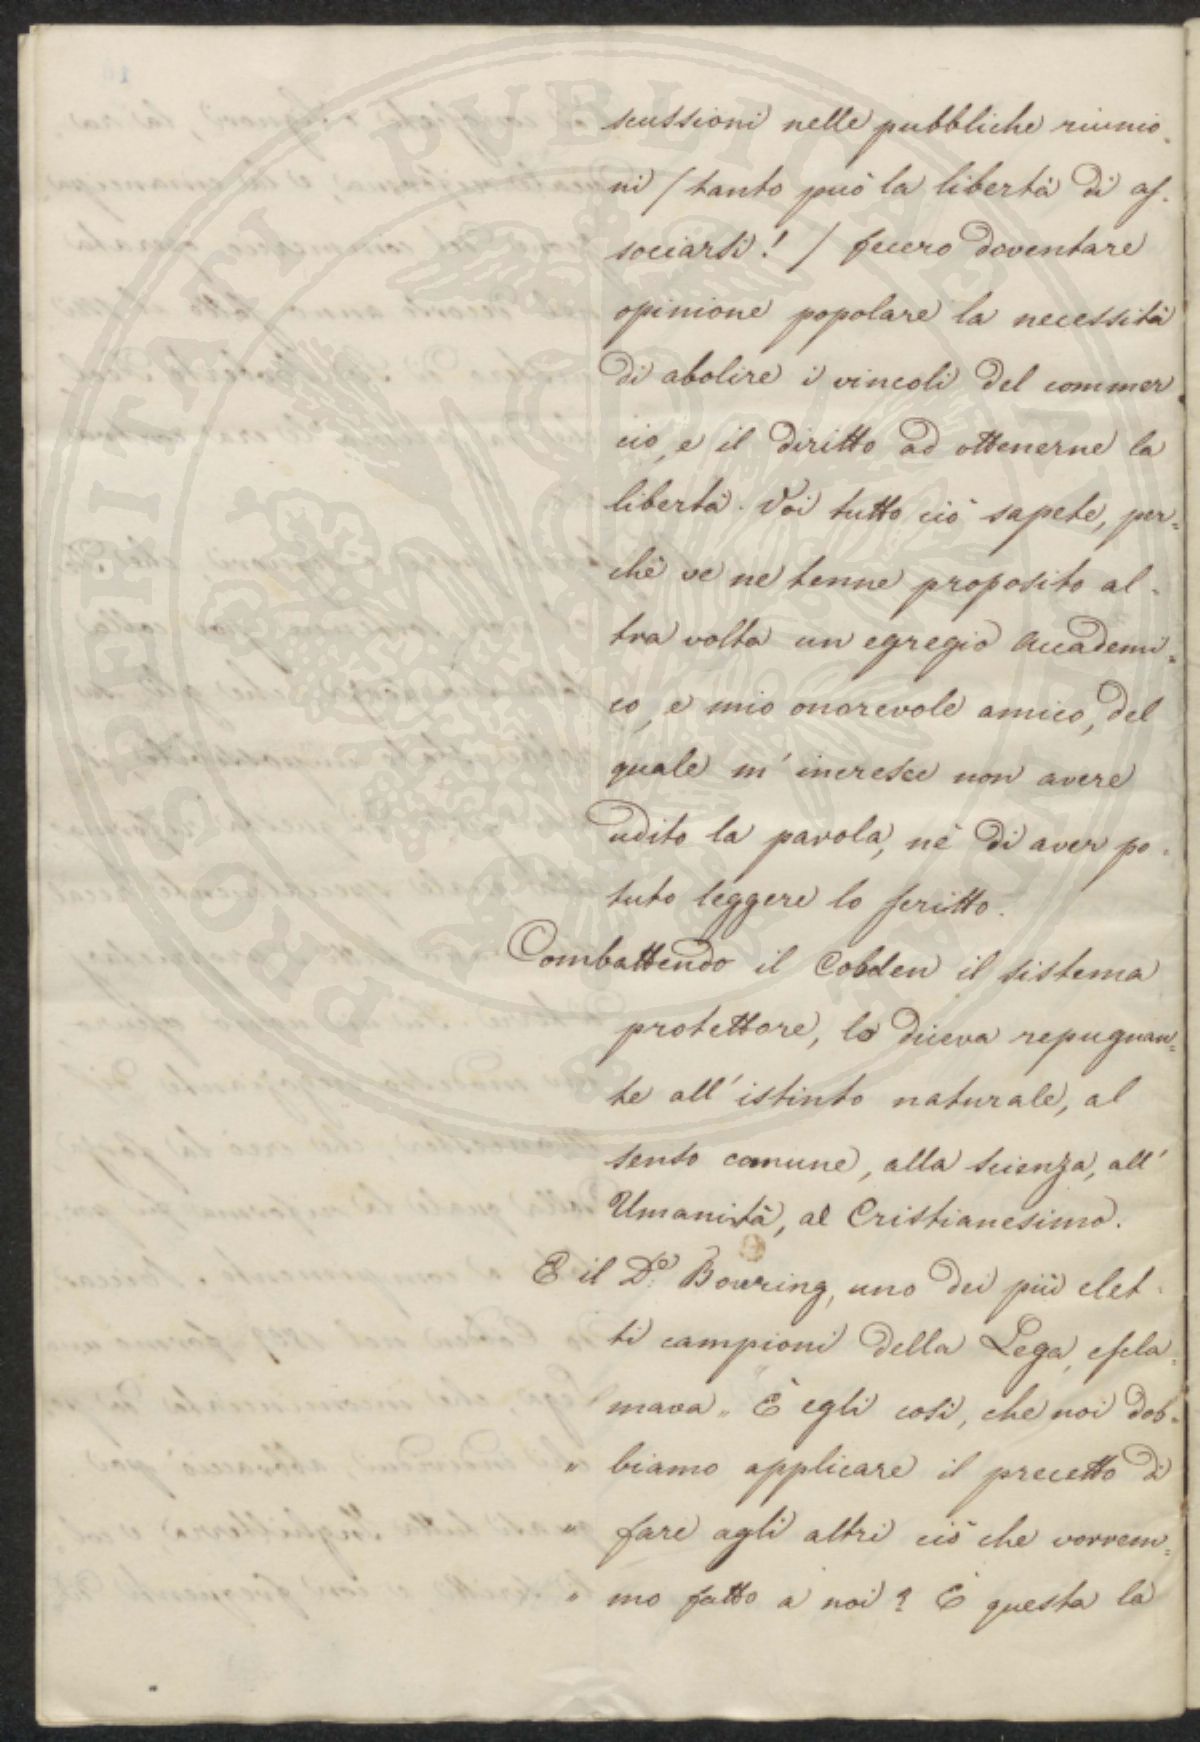 scussioni nelle pubbliche riunio-
ni / tanto può la libertà di as-
sociarsi! / fecero doventare
opinione popolare la necessità
di abolire i vincoli del commer-
cio, e il diritto ad ottenerne la
libertà. Voi tutto ciò sapete, per=
chè ve ne tenne proposito al-
tra volta un egregio Accademi=
co, e mio onorevole amico, del
quale m'incresce non avere
udito la parola, nè di aver po-
tuto leggere lo scritto.
Combattendo il Cobden il sistema
protettore, lo diceva repugnan=
te all'istinto naturale, al
senso comune, alla scienza, all'
Umanità, al Cristianesimo.
E il D.r Bowring, uno dei più elet-
ti campioni della Lega, escla=
mava „ È egli così, che noi dob=
„ biamo applicare il precetto di
„ fare agli altri ciò che vorrem=
„ mo fatto a noi? È questa la
PROSPERITATI PVBLICAE AVGENDAE